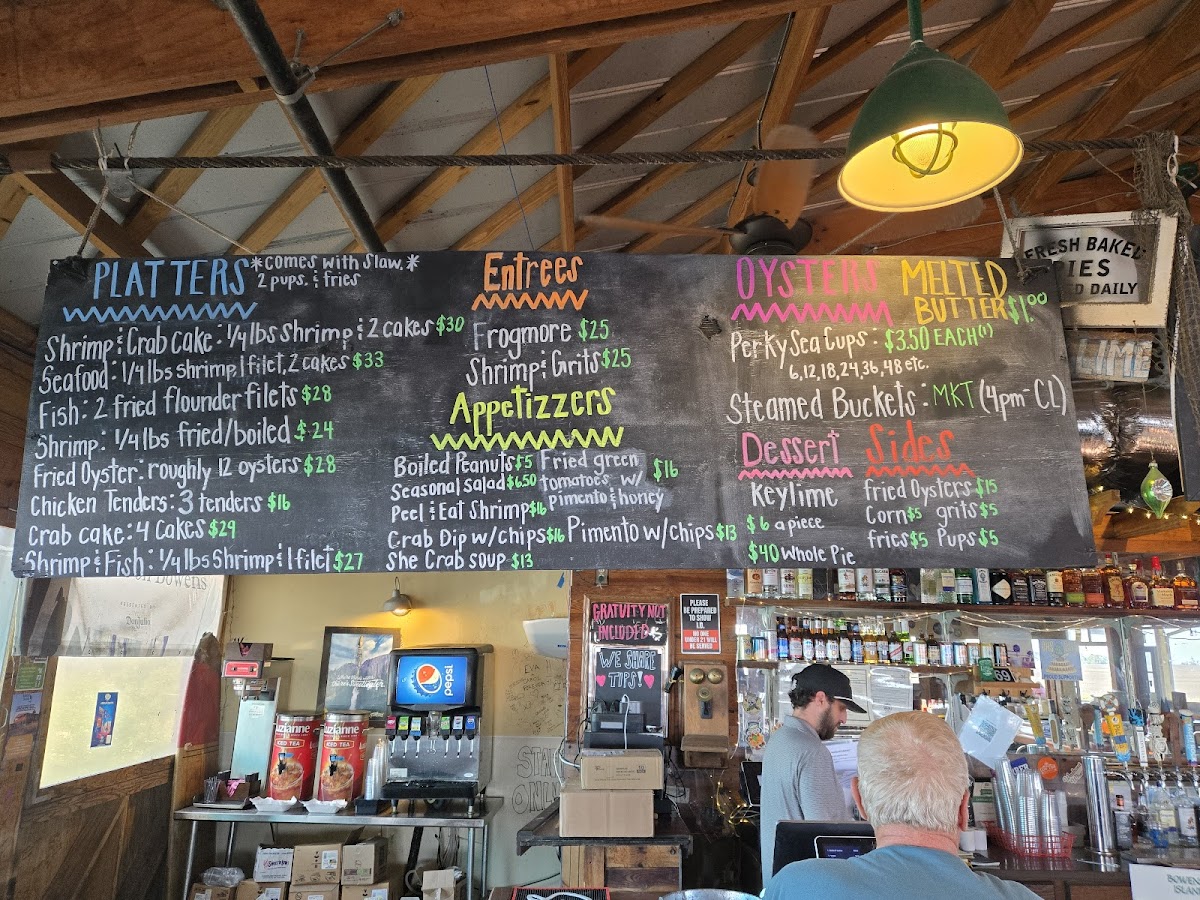 PLATTERS *comes with slaw,*
2 pups. & fries
Shrimp & Crab cake: 1/4 lbs shrimp & 2 cakes $30
Seafood: 1/4 lbs shrimp, 1 filet, 2 cakes $33
Fish: 2 fried flounder filets $28
Shrimp: 1/4 lbs fried/boiled $24
Fried Oyster: roughly 12 oysters $28
Chicken Tenders: 3 tenders $16
Crab cake: 4 cakes $29
Shrimp & Fish: 1/4 lbs Shrimp & 1 filet $27
Entrees
Frogmore $25
Shrimp & Grits $25
Appetizzers
Boiled Peanuts $5
Seasonal salad $6.50
Peel & Eat Shrimp $16
Crab Dip w/chips $16
She Crab soup $13
Fried green
tomatoes w/ $16
pimento & honey
Pimento w/chips $13
OYSTERS
Perky Sea Cups: $3.50 EACH(1)
6, 12, 18, 24, 36, 48 etc.
Steamed Buckets: MKT (4pm-CL)
MELTED
BUTTER $1.00
Dessert
Keylime
$6 a piece
$40 whole Pie
Sides
fried Oysters $15
Corn $5 grits $5
fries $5 Pups $5
FRESH BAKED
PIES
DAILY
LIME
Bowens
GRATUITY NOT
INCLUDED
WE SHARE
TIPS!
PLEASE
BE PREPARED
TO SHOW
I.D.
NO ONE
UNDER 21 WILL
BE SERVED
pepsi
Luzianne
ICED TEA
Luzianne
ICED TEA
69
BOWENS
ISLAND